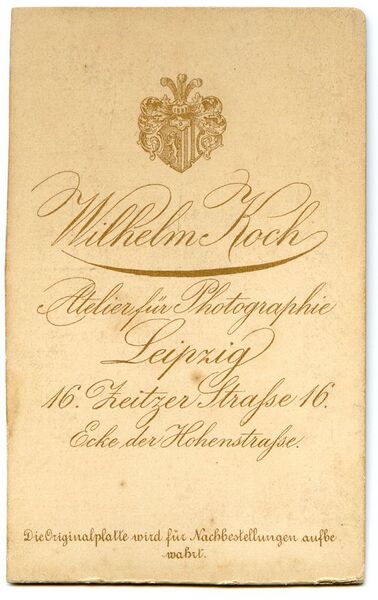 Wilhelm Koch
Atelier für Photographie
Leipzig
16. Zeitzer Straße 16.
Ecke der Hohenstraße.
Die Originalplatte wird für Nachbestellungen aufbe
wahrt.